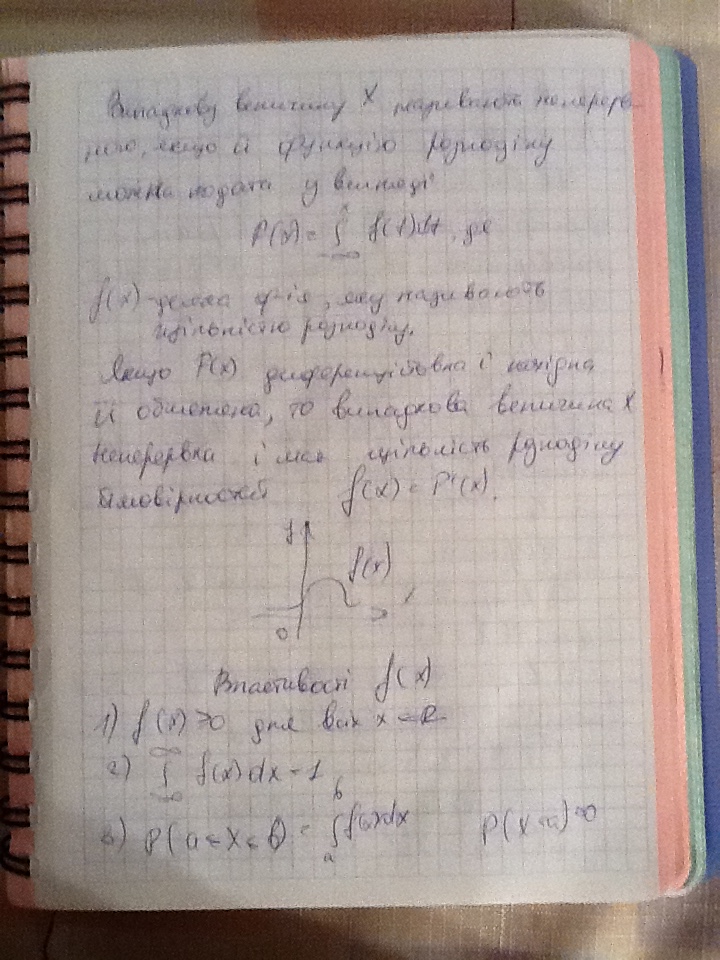 Випадкову величину X називають неперерв-
ною, якщо її функцію розподілу
можна подати у вигляді
F(x) = ∫ f(t)dt, де
x
-∞
f(x) - деяка ф-ія, яку називають
щільністю розподілу.
Якщо F(x) диференційовна і похідна
її обмежена, то випадкова величина X
неперервна і має щільність розподілу
ймовірностей f(x) = F'(x).
y
f(x)
0
Властивості f(x)
1) f(x) ≥ 0 для всіх x ∈ R
2) ∫ f(x)dx = 1
∞
-∞
3) P(a ≤ X ≤ b) = ∫ f(x)dx P(X = a) = 0
b
a